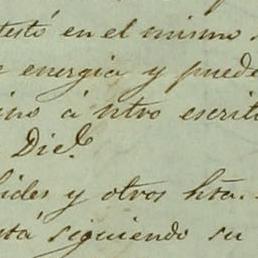 testó en el mismo
energia y puede
ino á ntro escrit
Die.
lides y otros hta.
stá siguiendo su